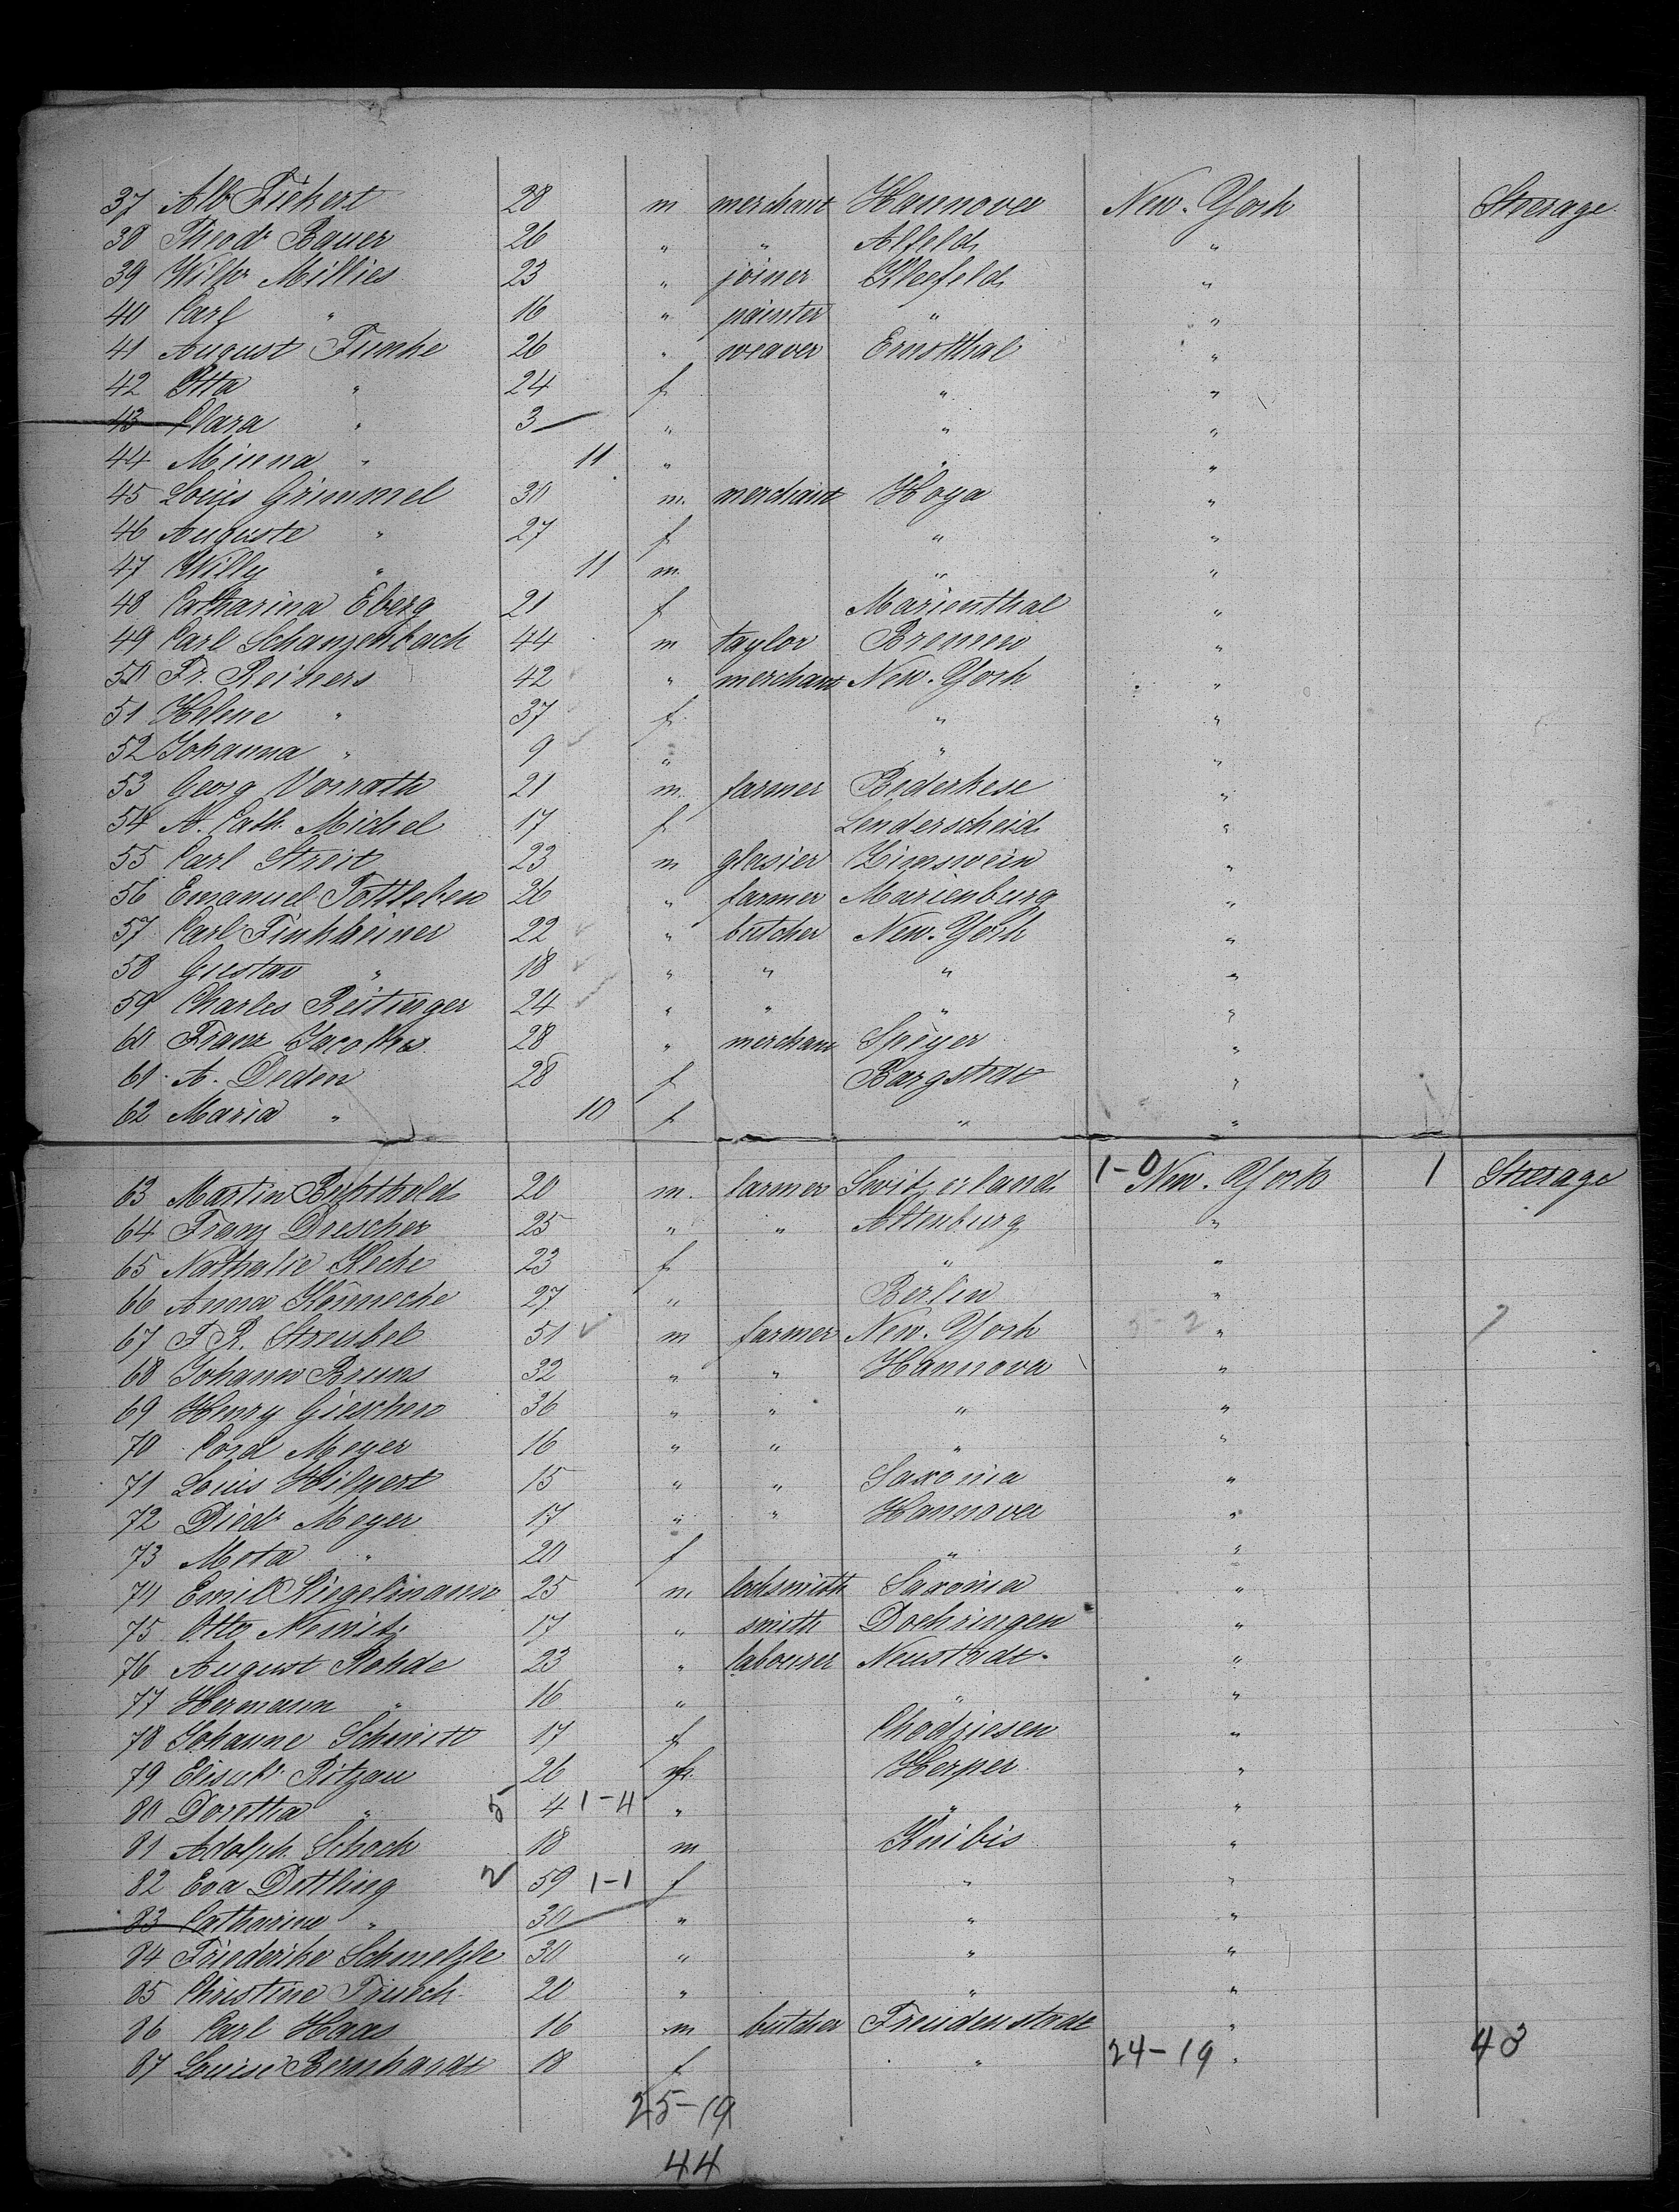 37 Alb Fickert 28 m merchant Hannover New-York Steerage
38 Theodr Bauer 26 " " Alfeld "
39 Wilhr Millies 23 " joiner Kleefeld "
40 Carl " 16 " painter " "
41 August Funke 26 " weaver Ernstthal "
42 Otta " 24 f " "
43 Clara " 3 " " "
44 Minna " 11 " " "
45 Louis Grimmel 30 m. merchant Hoya "
46 Auguste " 27 f " "
47 Willy " 11 m " "
48 Catharina Eberg 21 f Marienthal "
49 Carl Schanzenbach 44 m taylor Bremen "
50 Fr. Reiners 42 " merchant New-York "
51 Helene " 37 f " "
52 Johanna " 9 " " "
53 Georg Vorrath 21 m. farmer Bederkese "
54 A. Cath. Michel 17 f Lenderscheid "
55 Carl Streit 23 m glasier Zimswein "
56 Emanuel Tottleben 26 " farmer Marienburg "
57 Carl Finkheiner 22 " butcher New-York "
58 Gustav " 18 " " " "
59 Charles Reitinger 24 " " " "
60 Franz Jacobs 28 " merchant Speyer "
61 A. Deden 28 f Bargstedt "
62 Maria " 10 f " "
63 Martin Berthold 20 m. farmer Switzerland 1-0 New-York 1 Steerage
64 Franz Drescher 25 " " Altenburg "
65 Nathalie Keche 23 f " "
66 Anna Könnecke 27 " Berlin "
67 F R. Streubel 51 m farmer New-York "
68 Johann Bruns 32 " " Hannover "
69 Henry Gieschen 36 " " " "
70 Cord Meyer 16 " " " "
71 Louis Hilpert 15 " " Saxonia "
72 Diedr Meyer 17 " " Hannover "
73 Meta " 20 f " "
74 Emil Kliegelmann 25 m locksmith Saxonia "
75 Otto Nemitz 17 " smith Doehringen "
76 August Rohde 23 " labourer Neustadt "
77 Hermann " 16 " " "
78 Johanne Schmitt 17 f Chodziesen "
79 Elisabt Ritzau 26 f. Herper "
80 Doretha " 5 4 1-4 " " "
81 Adolph Schoch 18 m Knibis "
82 Eva Dettling 2 59 1-1 f " "
83 Catharine " 30 " " "
84 Friederike Schmelzle 30 " " "
85 Christine Frueh 20 " " "
86 Carl Haas 16 m butcher Freudenstadt "
87 Louise Bernhardt 18 f " 24-19 " 43
25-19
44